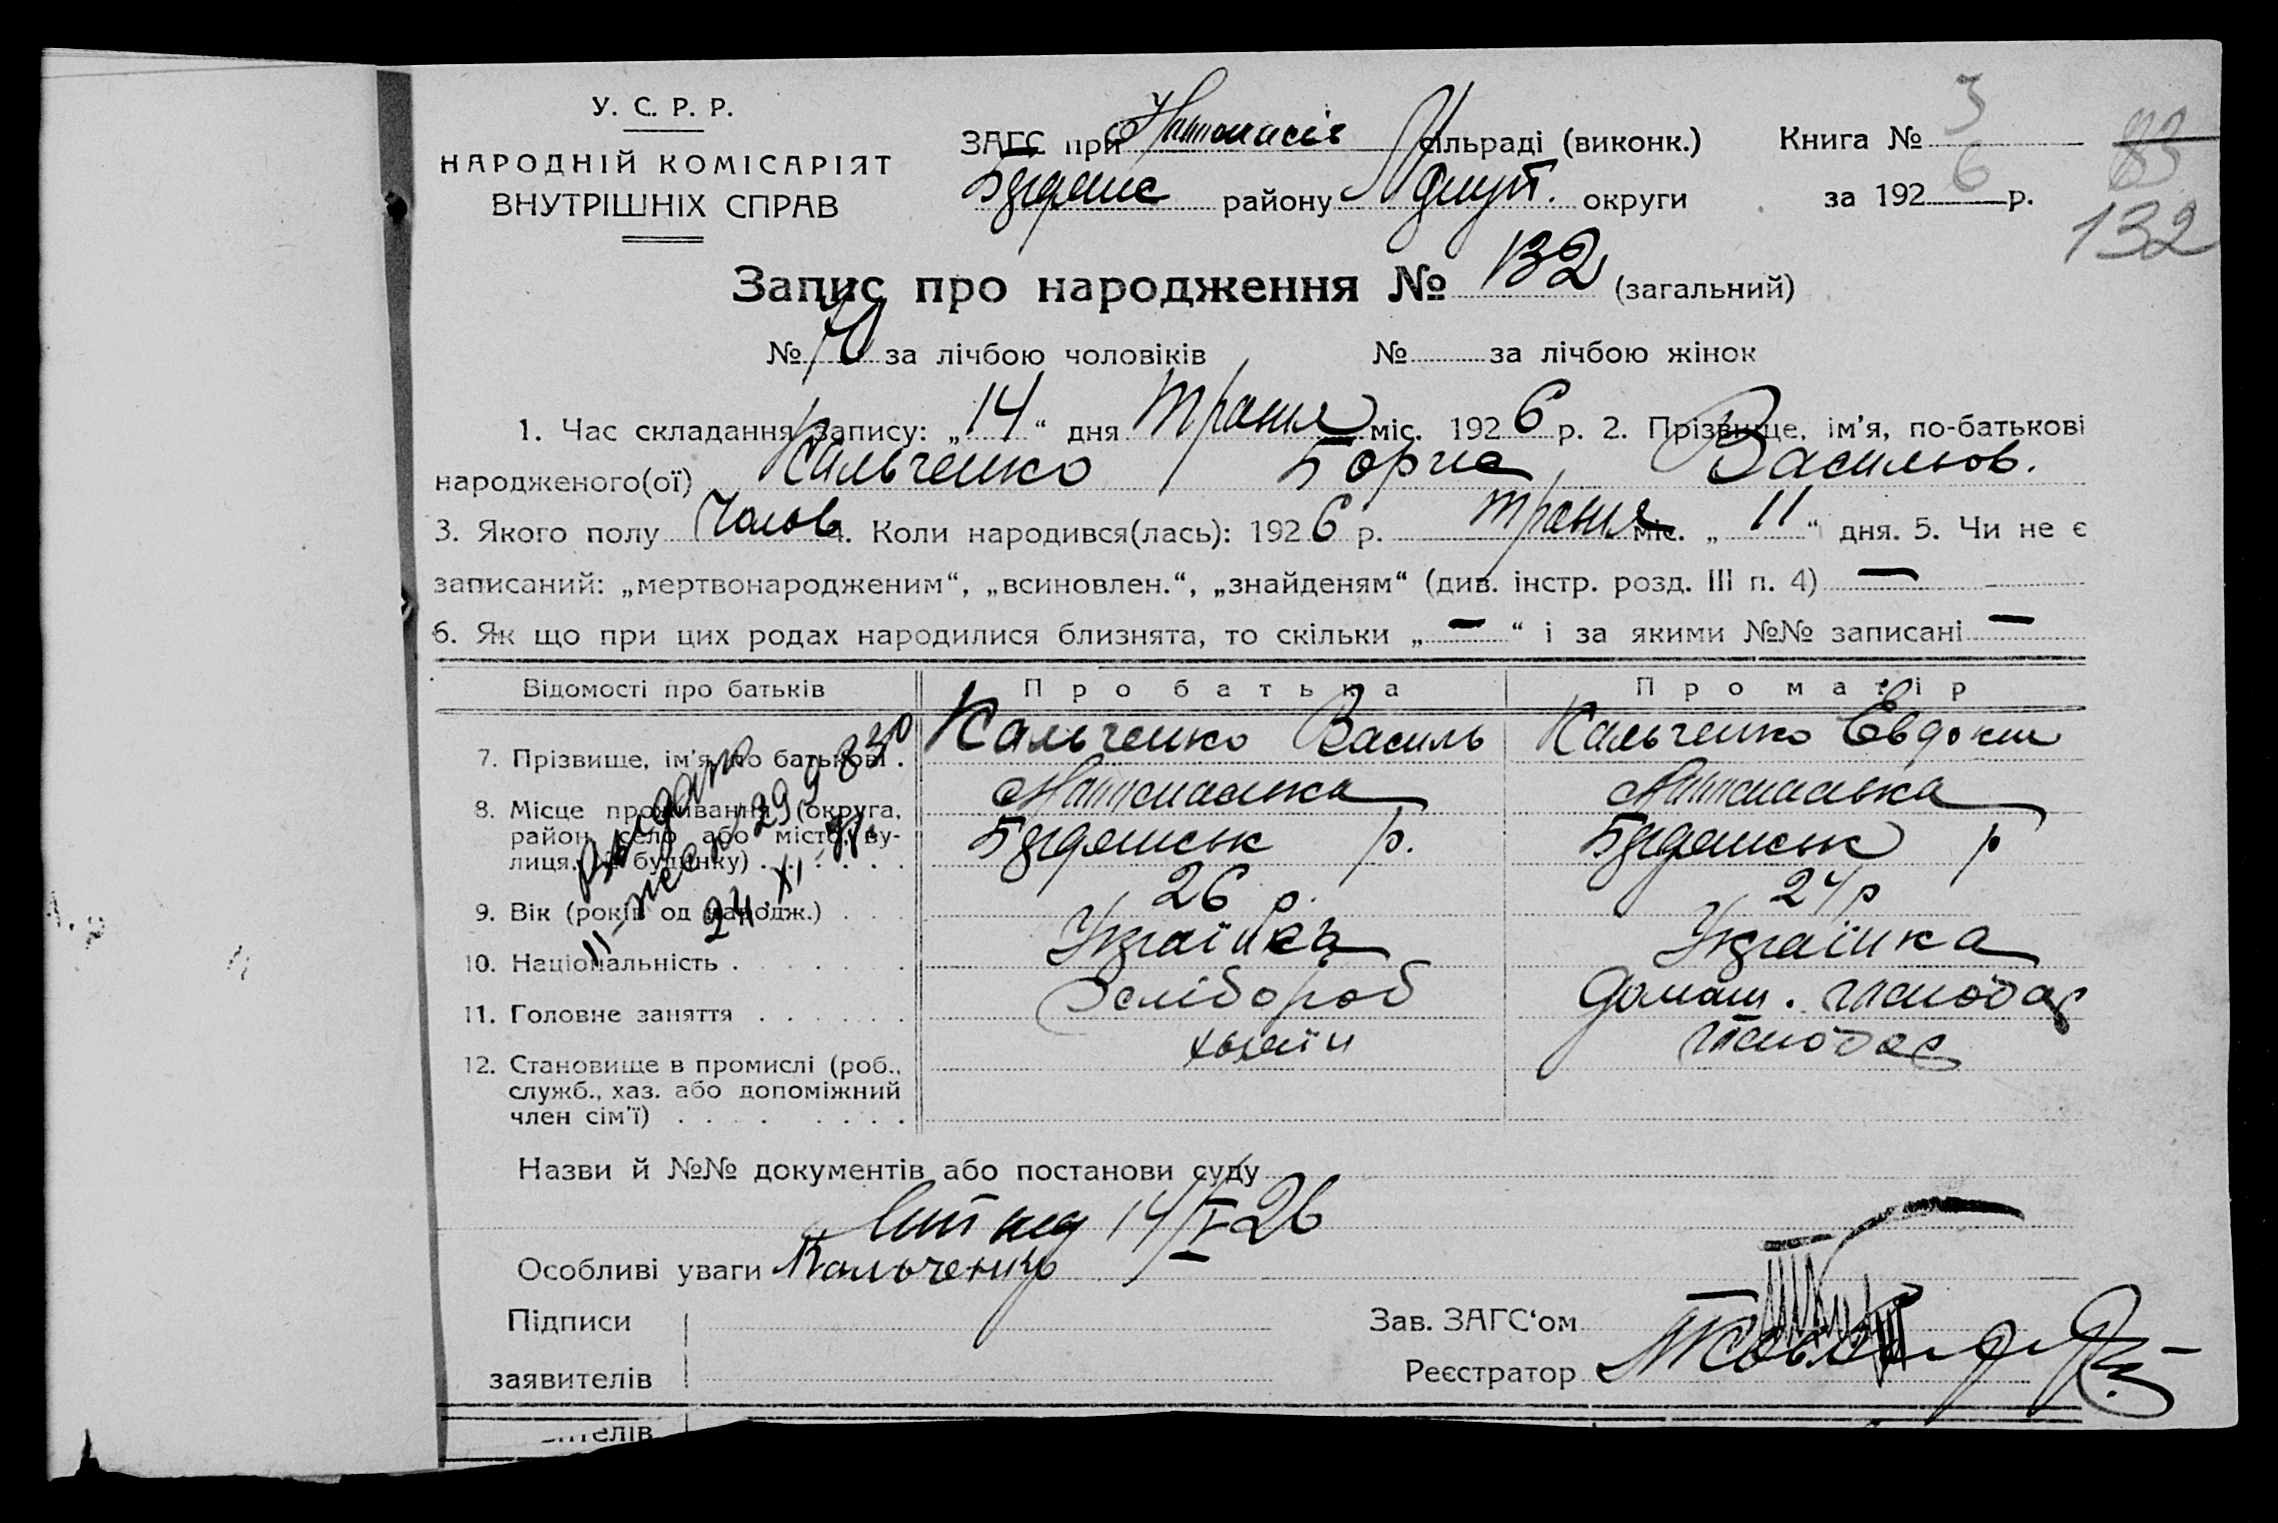 У. С. Р. Р.
НАРОДНІЙ КОМІСАРІЯТ
ВНУТРІШНІХ СПРАВ
ЗАГС при сільраді (виконк.)
району округи
Книга № 3
за 1926 р.
83
132
Запис про народження № 132 (загальний)
№ 70 за лічбою чоловіків № за лічбою жінок
1. Час складання запису: „14“ дня Траня міс. 1926 р. 2. Прізвище, ім'я, по-батькові
народженого(ої) Кальченко Бориса Васильов.
3. Якого полу Чолов 4. Коли народився(лась): 1926 р. Траня міс. „11“ дня. 5. Чи не є
записаний: „мертвонародженим“, „всиновлен.“, „знайденям“ (див. інстр. розд. III п. 4) —
6. Як що при цих родах народилися близнята, то скільки „—“ і за якими №№ записані —
Відомості про батьків Про батька Про матір
7. Прізвище, ім'я, по батькові . Кальченко Василь Кальченко Евдокия
8. Місце проживання (округа,
район, село або місто, ву-
лиця, № будинку) . . . . . .
р. р
9. Вік (років од народж.) . . . 26 р. 24 р
10. Національність . . . . . . Українець Українка
11. Головне заняття . . . . . . Хлібороб Домаш. господар
12. Становище в промислі (роб., хазяїн господар
служб., хаз. або допоміжний
член сім'ї) . . . . . . . .
Видано
24 XI
Назви й №№ документів або постанови суду
14/V 26
Особливі уваги Кальченко
Підписи
заявителів
Зав. ЗАГС‘ом
Реєстратор